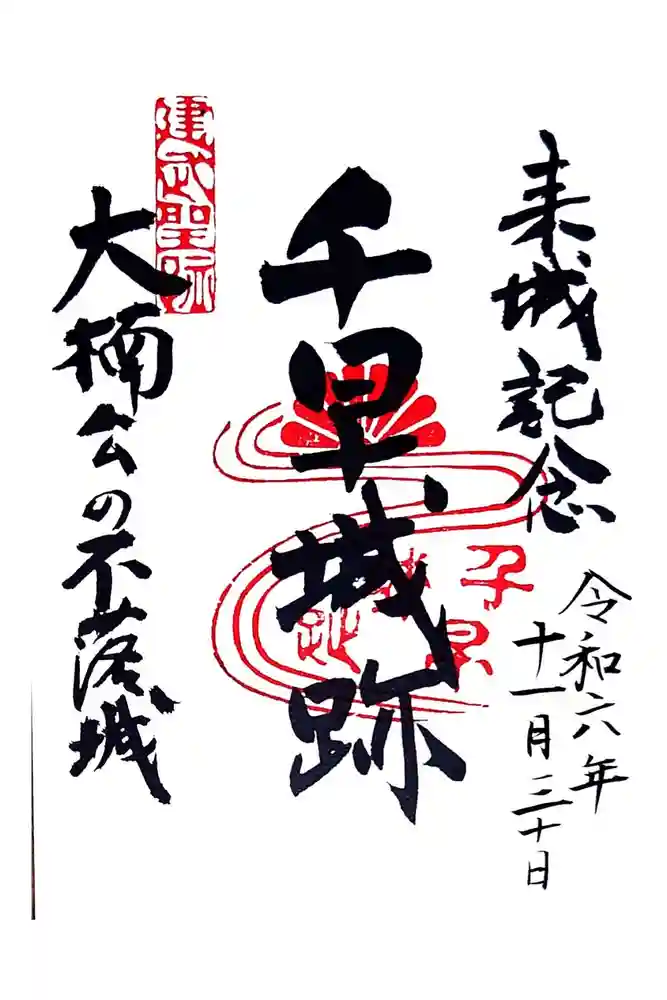 来城記念
令和六年
十一月三十日
千早城跡
千早
城跡
建武聖跡
大楠公の不落城